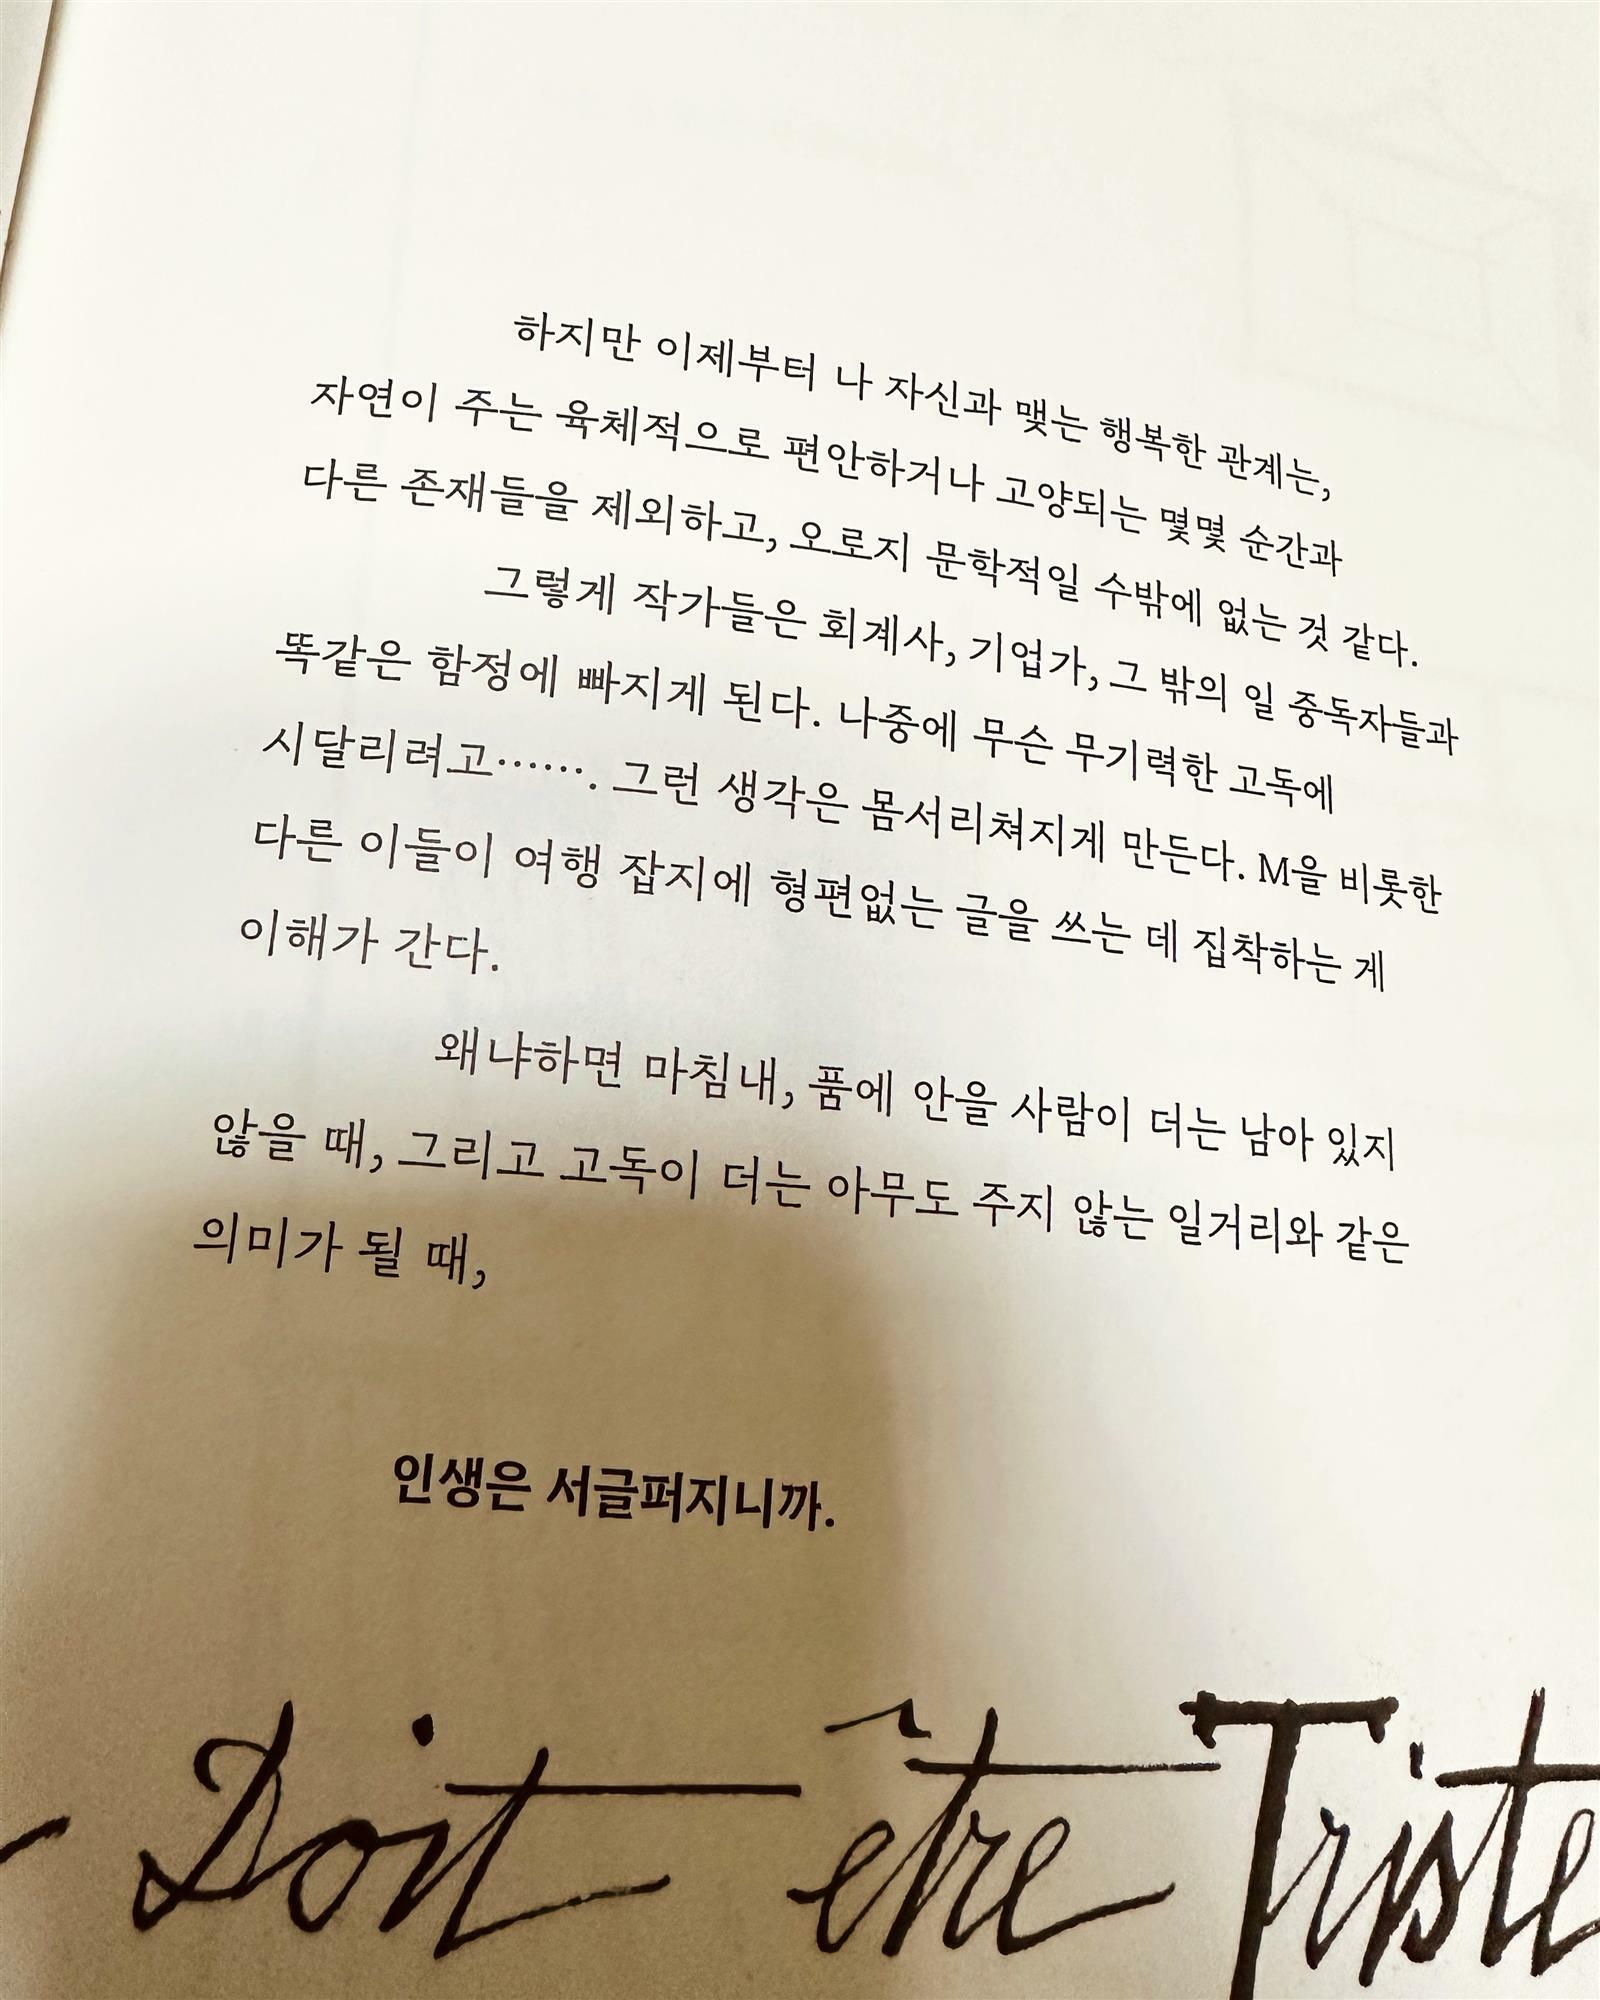 하지만 이제부터 나 자신과 맺는 행복한 관계는,
자연이 주는 육체적으로 편안하거나 고양되는 몇몇 순간과
다른 존재들을 제외하고, 오로지 문학적일 수밖에 없는 것 같다.
그렇게 작가들은 회계사, 기업가, 그 밖의 일 중독자들과
똑같은 함정에 빠지게 된다. 나중에 무슨 무기력한 고독에
시달리려고……. 그런 생각은 몸서리쳐지게 만든다. M을 비롯한
다른 이들이 여행 잡지에 형편없는 글을 쓰는 데 집착하는 게
이해가 간다.
왜냐하면 마침내, 품에 안을 사람이 더는 남아 있지
않을 때, 그리고 고독이 더는 아무도 주지 않는 일거리와 같은
의미가 될 때,
인생은 서글퍼지니까.
Doit être Triste